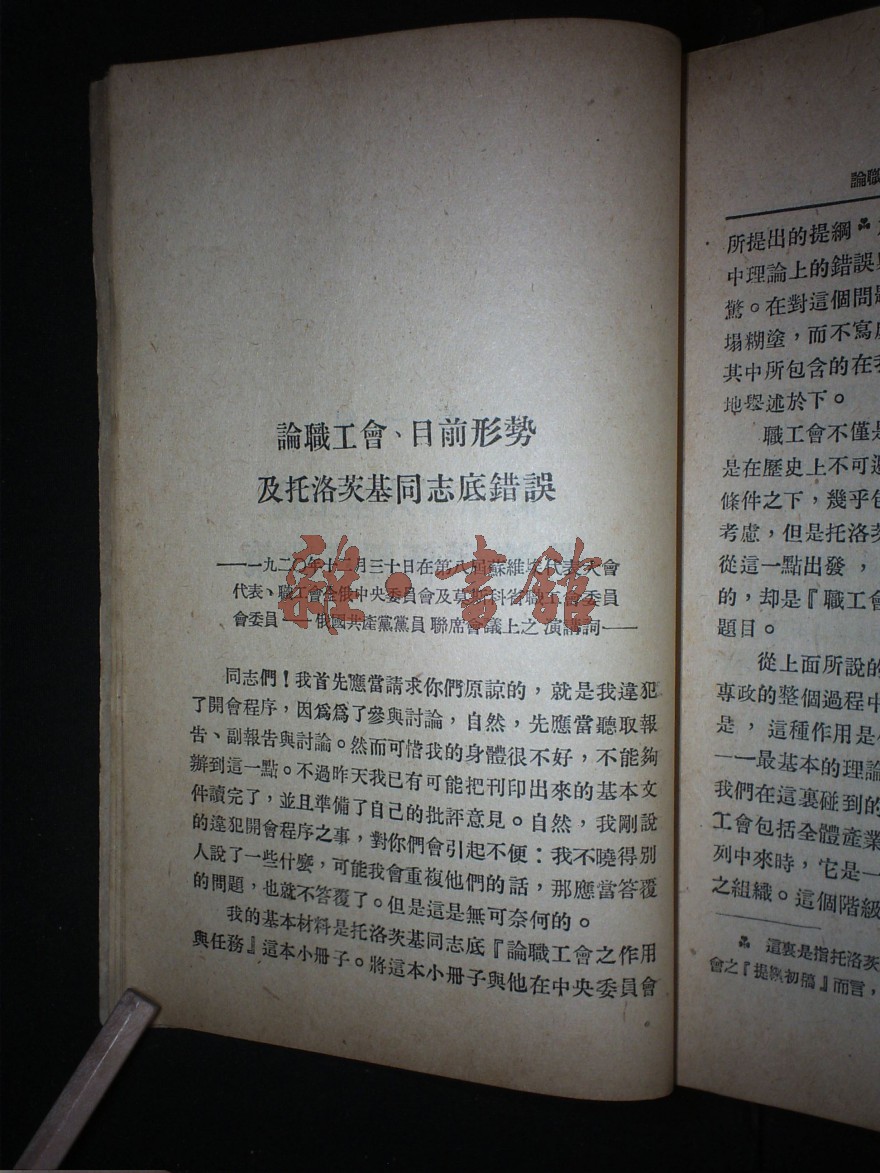 論職工會、目前形勢
及托洛茨基同志底錯誤
——一九二〇年十二月三十日在第八屆蘇維埃代表大會
代表、職工會全俄中央委員會及莫斯科省職工會委員
會委員——俄國共產黨黨員聯席會議上之演講詞——
同志們！我首先應當請求你們原諒的，就是我違犯
了開會程序，因爲爲了參與討論，自然，先應當聽取報
告、副報告與討論。然而可惜我的身體很不好，不能夠
辦到這一點。不過昨天我已有可能把刊印出來的基本文
件讀完了，並且準備了自己的批評意見。自然，我剛說
的違犯開會程序之事，對你們會引起不便：我不曉得別
人說了一些什麼，可能我會重複他們的話，那應當答覆
的問題，也就不答覆了。但是這是無可奈何的。
我的基本材料是托洛茨基同志底『論職工會之作用
與任務』這本小冊子。將這本小冊子與他在中央委員會
雜·書館
論職
所提出的提綱
中理論上的錯誤
驚。在對這個問題
塌糊塗，而不寫
其中所包含的在
地舉述於下。
職工會不僅是
是在歷史上不可避
條件之下，幾乎包
考慮，但是托洛茨
從這一點出發，
的，却是『職工會
題目。
從上面所說的
專政的整個過程中
是，這種作用是
——最基本的理論
我們在這裏碰到的
工會包括全體產業
列中來時，它是一
之組織。這個階級
這裏是指托洛茨
會之『提綱初稿』而言，